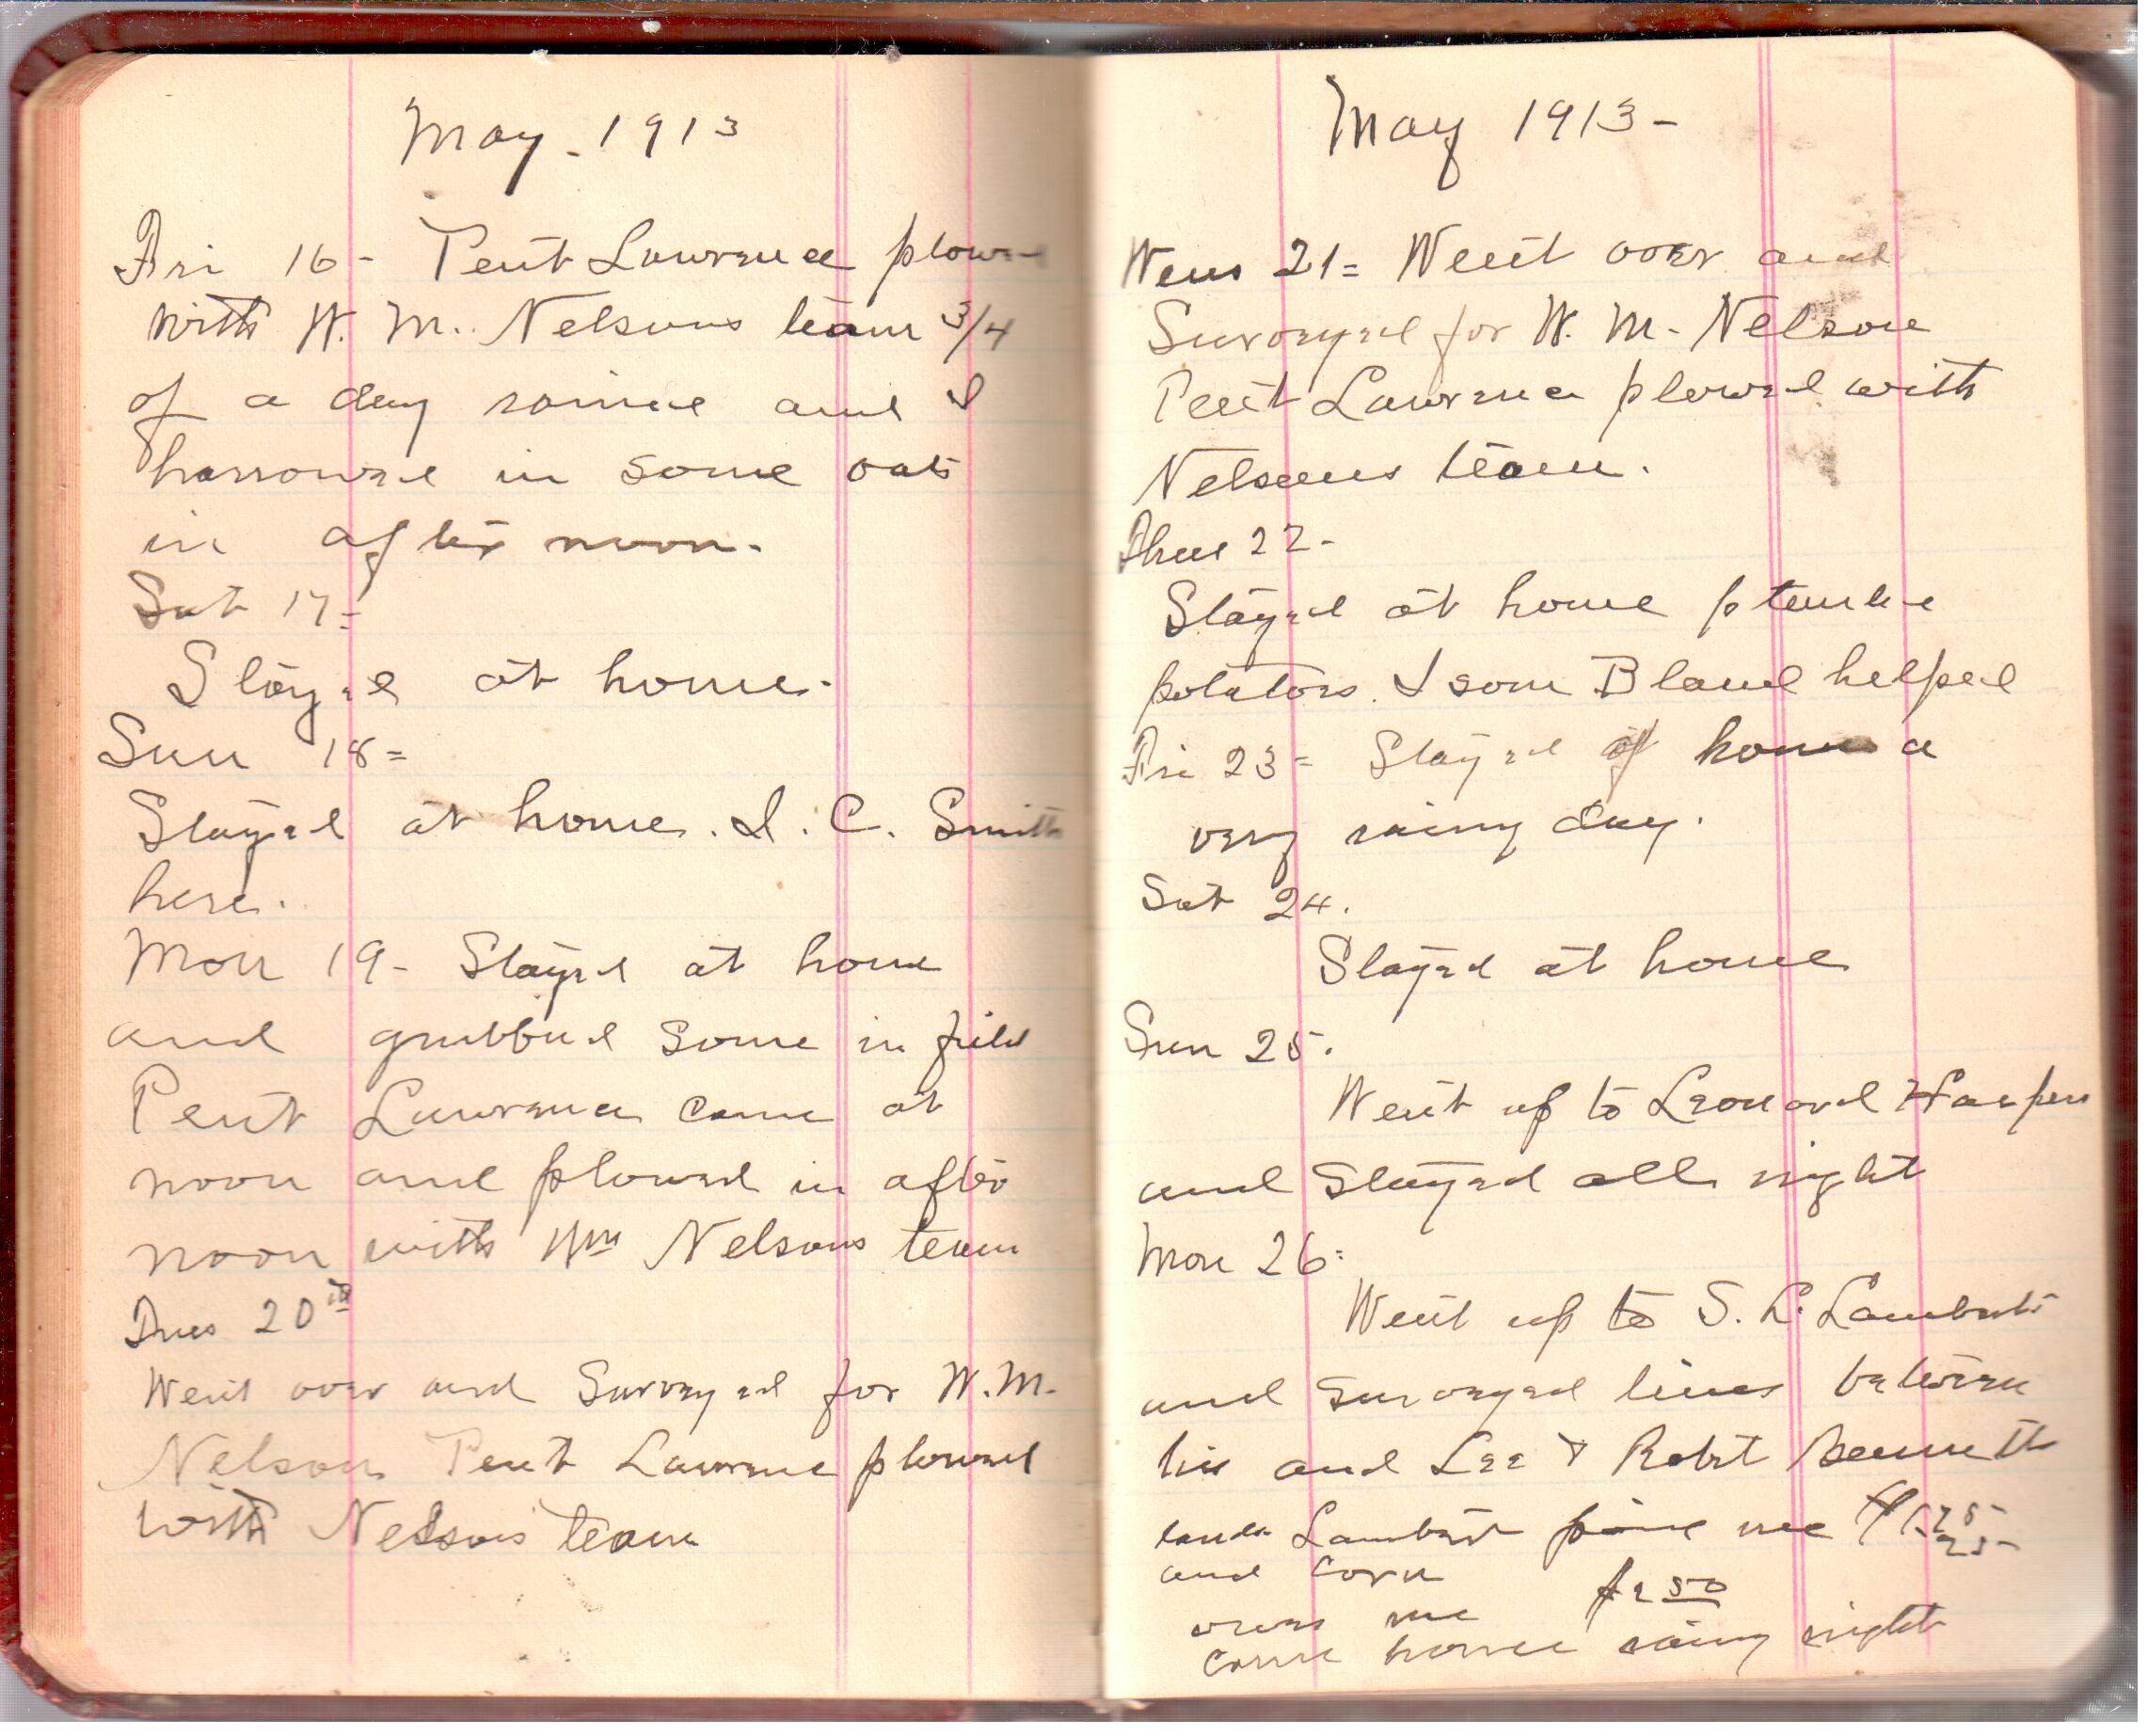 May. 1913
Fri 16 - Pent Lawrence plowed
with W. M. Nelsons team 3/4
of a day rained and I
harrowed in some oats
in after noon.
Sat 17=
Stayed at home.
Sun 18=
Stayed at home. I. C. Smith
here.
Mon 19- Stayed at home
and grubbed some in field
Pent Lawrence came at
noon and plowed in after
noon with Wm Nelsons team
Tues 20th
Went over and Surveyed for W.M.
Nelson Pent Lawrence plowed
with Nelsons team
May 1913-
Wens 21= Went over and
Surveyed for W. M. Nelson
Pent Lawrence plowed with
Nelsons team.
Thur 22-
Stayed at home planted
potatoes. Isom Bland helped
Fri 23= Stayed at home a
very rainy day.
Sat 24.
Stayed at home
Sun 25.
Went up to Leonard Harpers
and Stayed all night
Mon 26=
Went up to S. L. Lamberts
and surveyed lines between
his and Lee & Robt Bennett
lands Lambert paid me
and corn
owes me $2 50
came home rainy night